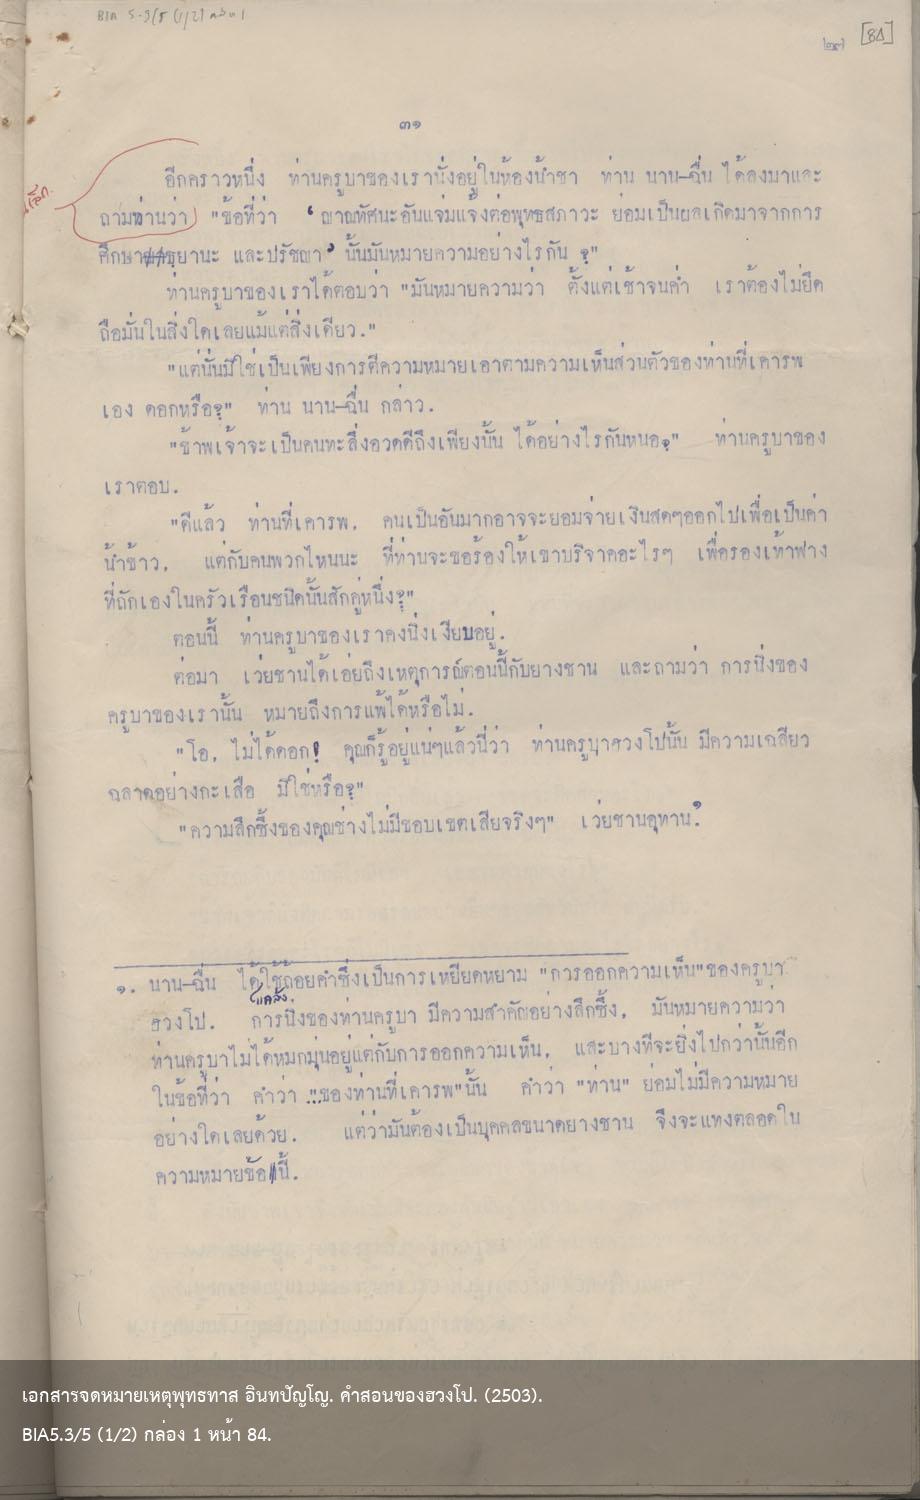 BIA 5.3/5 (1/2) กล่อง 1
๒๗ [84]
๓๑
อีกคราวหนึ่ง ท่านครูบาของเรานั่งอยู่ในห้องน้ำชา ท่าน นาน-ฉื่น ได้ลงมาและ
ถามท่านว่า "ข้อที่ว่า 'ญาณทัศนะอันแจ่มแจ้งต่อพุทธสภาวะ ย่อมเป็นผลเกิดมาจากการ
ศึกษา ธยานะ และปรัชญา' นั้นมันหมายความอย่างไรกัน ?"
ท่านครูบาของเราได้ตอบว่า "มันหมายความว่า ตั้งแต่เช้าจนค่ำ เราต้องไม่ยึด
ถือมั่นในสิ่งใดเลยแม้แต่สิ่งเดียว."
"แต่นั่นมิใช่เป็นเพียงการตีความหมายเอาตามความเห็นส่วนตัวของท่านที่เคารพ
เอง ดอกหรือ?" ท่าน นาน-ฉื่น กล่าว.
"ข้าพเจ้าจะเป็นคนทะลึ่งอวดดีถึงเพียงนั้น ได้อย่างไรกันหนอ?" ท่านครูบาของ
เราตอบ.
"ดีแล้ว ท่านที่เคารพ. คนเป็นอันมากอาจจะยอมจ่ายเงินสดๆออกไปเพื่อเป็นค่า
น้ำข้าว, แต่กับคนพวกไหนนะ ที่ท่านจะขอร้องให้เขาบริจาคอะไรๆ เพื่อรองเท้าฟาง
ที่ถักเองในครัวเรือนชนิดนั้นสักคู่หนึ่ง?"
ตอนนี้ ท่านครูบาของเราคงนิ่งเงียบอยู่.
ต่อมา เว่ยชานได้เอ่ยถึงเหตุการณ์ตอนนี้กับยางชาน และถามว่า การนิ่งของ
ครูบาของเรานั้น หมายถึงการแพ้ได้หรือไม่.
"โอ, ไม่ได้ดอก! คุณก็รู้อยู่แน่ๆแล้วนี่ว่า ท่านครูบาฮวงโปนั้น มีความเฉลียว
ฉลาดอย่างกะเสือ มิใช่หรือ?"
"ความลึกซึ้งของคุณช่างไม่มีขอบเขตเสียจริงๆ" เว่ยชานอุทาน.๑
๑. นาน-ฉื่น ได้ใช้ถ้อยคำซึ่งเป็นการเหยียดหยาม "การออกความเห็น"ของครูบา
แกล้ง
ฮวงโป. การนิ่งของท่านครูบา มีความสำคัญอย่างลึกซึ้ง, มันหมายความว่า
ท่านครูบาไม่ได้หมกมุ่นอยู่แต่กับการออกความเห็น, และบางทีจะยิ่งไปกว่านั้นอีก
ในข้อที่ว่า คำว่า "...ของท่านที่เคารพ"นั้น คำว่า "ท่าน" ย่อมไม่มีความหมาย
อย่างใดเลยด้วย. แต่ว่ามันต้องเป็นบุคคลขนาดยางชาน จึงจะแทงตลอดใน
ความหมายข้อนี้.
เอกสารจดหมายเหตุพุทธทาส อินทปัญโญ. คำสอนของฮวงโป. (2503).
BIA5.3/5 (1/2) กล่อง 1 หน้า 84.